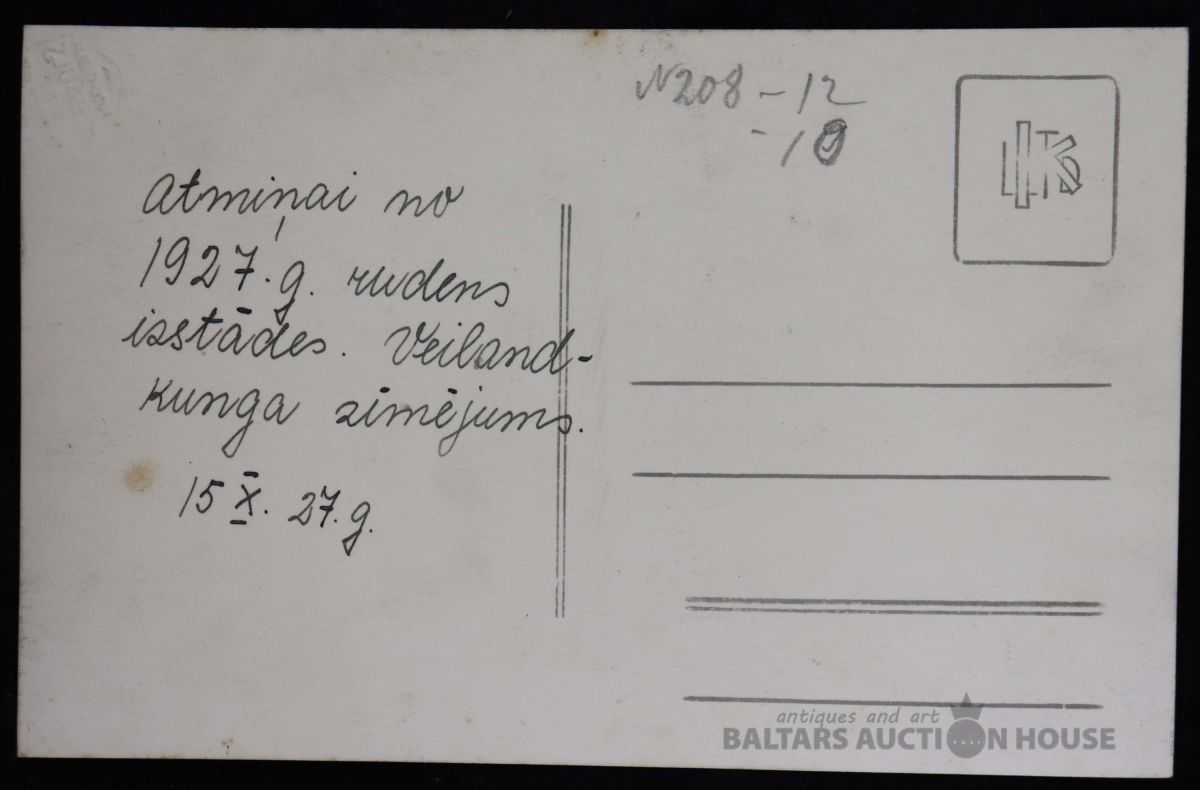 N208-12
-10
Atmiņai no
1927.g. rudens
izstādes. Veiland-
kunga zīmējums.
15 X. 27.g.
antiques and art
BALTARS AUCTION HOUSE